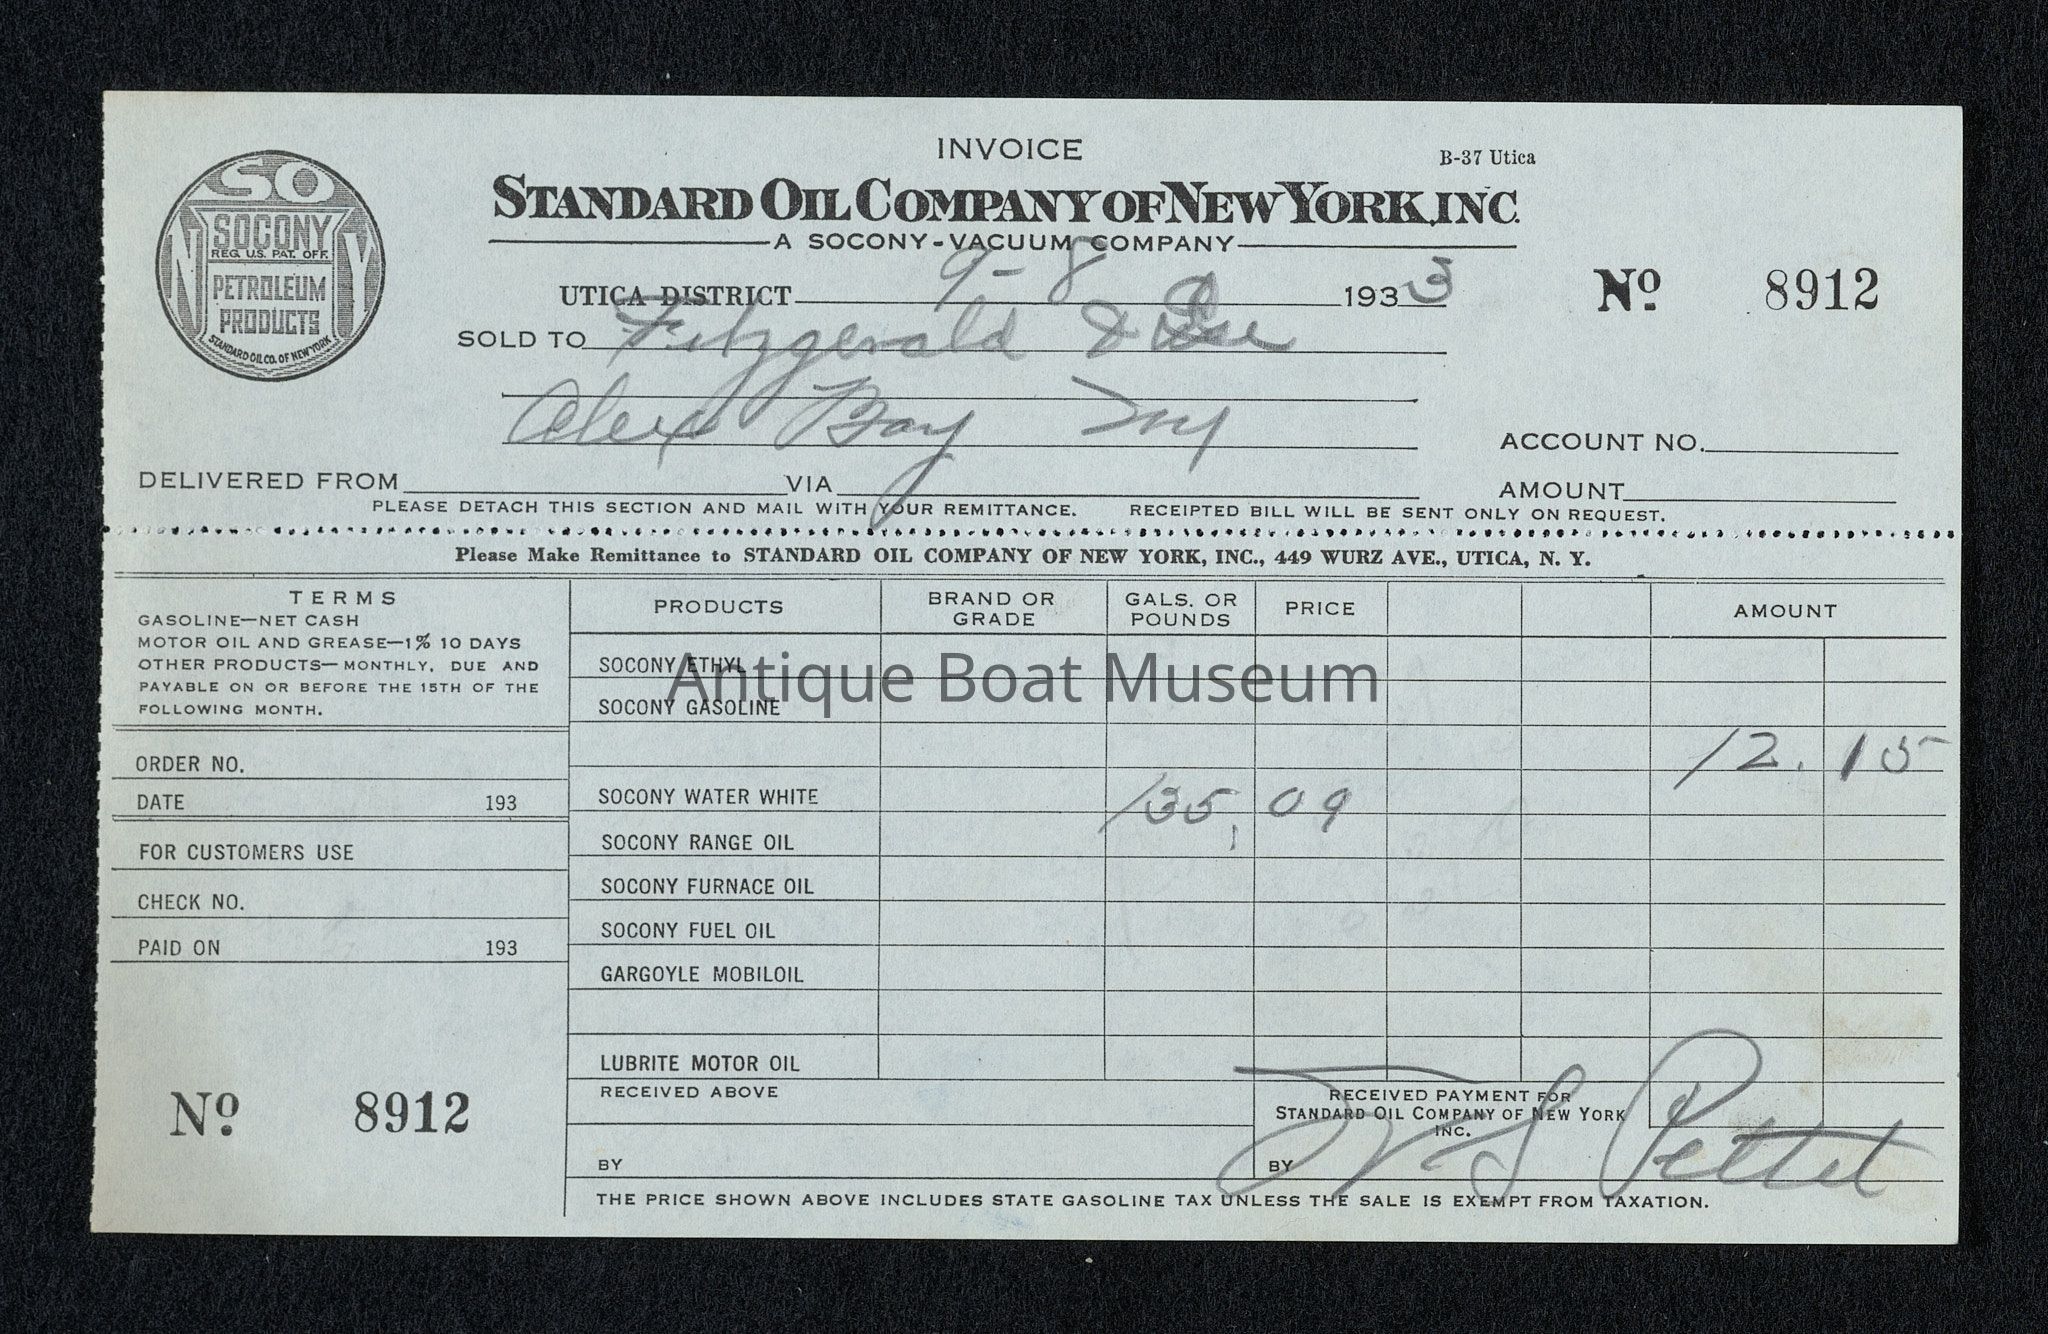 INVOICE
B-37 Utica
STANDARD OIL COMPANY OF NEW YORK, INC.
A SOCONY-VACUUM COMPANY
SO
N Y
SOCONY
REG. U.S. PAT. OFF.
PETROLEUM
PRODUCTS
STANDARD OIL CO. OF NEW YORK
UTICA DISTRICT 9-8 1933
No 8912
SOLD TO Fitzgerald & Lee
Alex Bay NY
ACCOUNT NO.
DELIVERED FROM VIA
AMOUNT
PLEASE DETACH THIS SECTION AND MAIL WITH YOUR REMITTANCE. RECEIPTED BILL WILL BE SENT ONLY ON REQUEST.
Please Make Remittance to STANDARD OIL COMPANY OF NEW YORK, INC., 449 WURZ AVE., UTICA, N. Y.
TERMS
GASOLINE—NET CASH
MOTOR OIL AND GREASE—1% 10 DAYS
OTHER PRODUCTS—MONTHLY, DUE AND
PAYABLE ON OR BEFORE THE 15TH OF THE
FOLLOWING MONTH.
ORDER NO.
DATE 193
FOR CUSTOMERS USE
CHECK NO.
PAID ON 193
No 8912
PRODUCTS BRAND OR GRADE GALS. OR POUNDS PRICE AMOUNT
SOCONY ETHYL
SOCONY GASOLINE
12.15
SOCONY WATER WHITE 135, 09
SOCONY RANGE OIL
SOCONY FURNACE OIL
SOCONY FUEL OIL
GARGOYLE MOBILOIL
LUBRITE MOTOR OIL
RECEIVED ABOVE
BY
RECEIVED PAYMENT FOR
STANDARD OIL COMPANY OF NEW YORK
INC.
BY Pettet
THE PRICE SHOWN ABOVE INCLUDES STATE GASOLINE TAX UNLESS THE SALE IS EXEMPT FROM TAXATION.
Antique Boat Museum